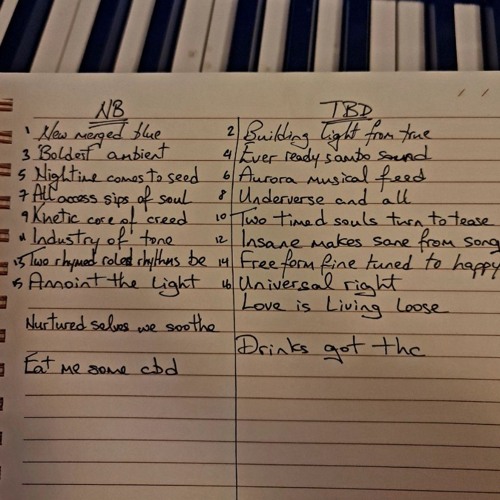 NB
TBD
1 New merged blue
2 Building light from true
3 Boldest ambient
4 Ever ready sambo sound
5 Nightime comes to seed
6 Aurora musical feed
7 All access sips of soul
8 Underverse and all
9 Knetic core of creed
10 Two timed souls turn to tease
11 Industry of tone
12 Insane makes sane from song
13 Two rhymed roled rhythms be
14 Free form fine tuned to happy
15 Annoint the Light
16 Universal right
Love is Living loose
Nurtured selves we soothe
Drinks got thc
Eat me some cbd